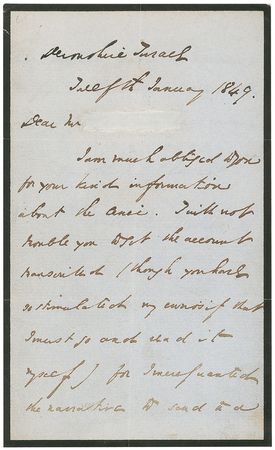 Devonshire Terrace
Twelfth January 1849.
Dear Mr.
I am much obliged to you
for your kind information
about the
I will not
trouble you to get the account
transcribed (though you have
so stimulated my curiosity that
I must go and read it
myself) for I merely wanted
the narrative to send to a